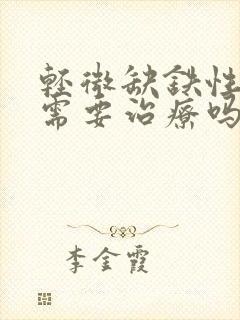 轻微缺铁性
需要治疗吗
李金霞